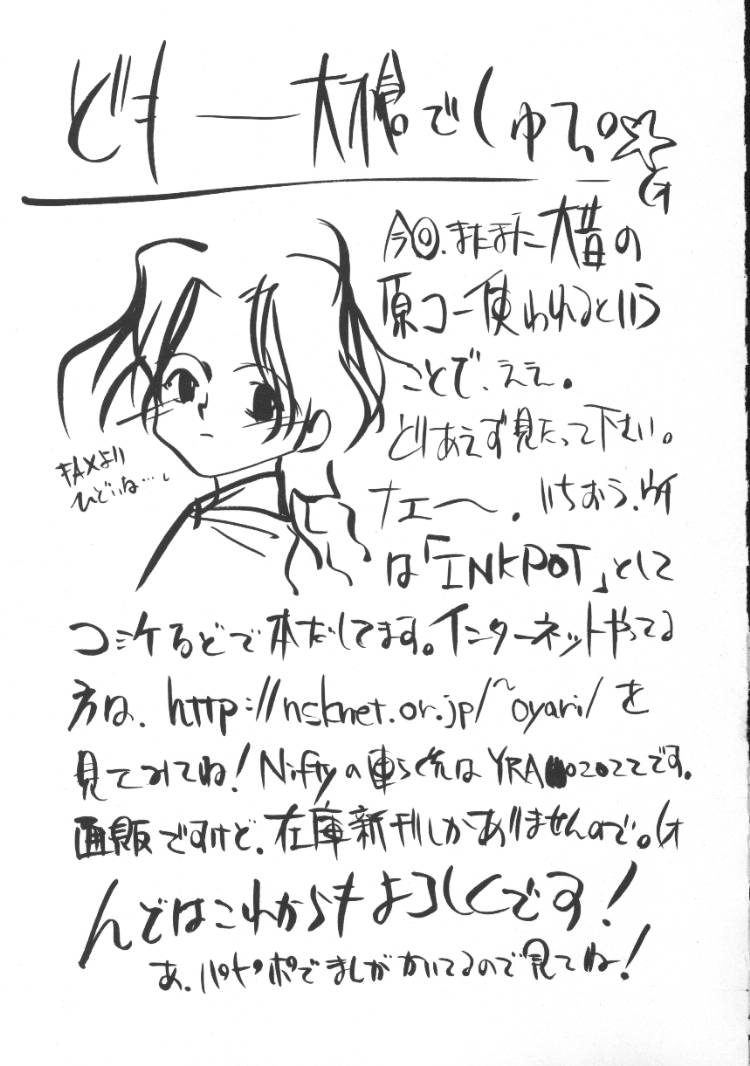 どもー大槍でしゅってん。☆(オ
今回、またまた大昔の
原コー使われるという
ことで、ええ。
とりあえず見たって下さい。
FAXより
ひどいな…。
ナエ〜。いちおう、ウチ
は「INKPOT」として
コミケなどで本だしてます。インターネットやってる
方は、http://nsknet.or.jp/~oyari/を
見てみてね！Niftyの連らく先はYRA02022です。
通販ですけど、在庫新刊しかありませんので。(オ
んではこれからもよろしくです！
あ、パトポポでまんがかいてるので見てね！